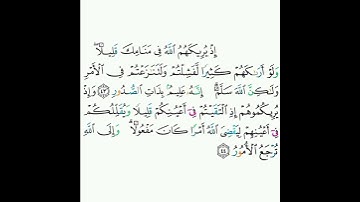 إِذْ يُرِيكَهُمُ اللَّهُ فِي مَنَامِكَ قَلِيلًا ۖ
وَلَوْ أَرَىٰكَهُمْ كَثِيرًا لَّفَشِلْتُمْ وَلَتَنَٰزَعْتُمْ فِي الْأَمْرِ
وَلَٰكِنَّ اللَّهَ سَلَّمَ ۗ إِنَّهُ عَلِيمٌۢ بِذَاتِ الصُّدُورِ ٤٣ وَإِذْ
يُرِيكُمُوهُمْ إِذِ الْتَقَيْتُمْ فِي أَعْيُنِكُمْ قَلِيلًا وَيُقَلِّلُكُمْ
فِي أَعْيُنِهِمْ لِيَقْضِيَ اللَّهُ أَمْرًا كَانَ مَفْعُولًا ۗ وَإِلَى اللَّهِ
تُرْجَعُ الْأُمُورُ ٤٤